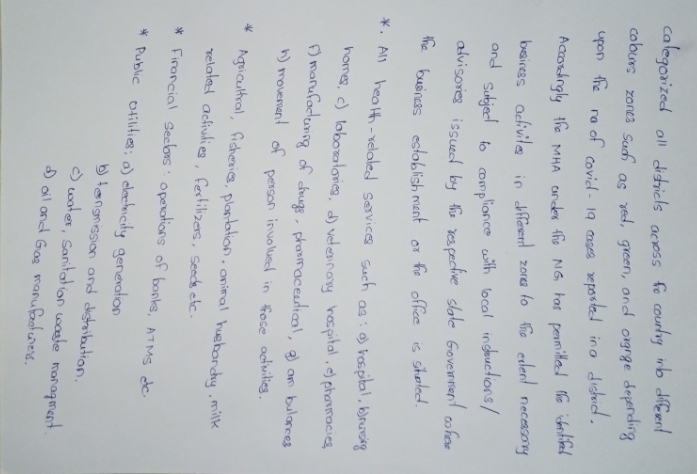 categorized all districts across the country into different
colours zones such as red, green, and orange depending
upon the no of covid-19 cases reported in a district.
Accordingly the MHA under the NG has permitted the identified
business activites in different zones to the extent necessary
and subject to compliance with local instructions/
advisories issued by the respective state Government where
the business establishment or the office is situated.
*. All health-related services such as: a) hospital, b) nursing
homes, c) laboratories, d) veterinary hospital, e) pharmacies
f) manufacturing of drugs, pharmaceutical, g) am bulances
h) movement of person involved in these activities.
* Agricultral, fisheries, plantation, animal husbandry, milk
related activities, fertilizers, seeds etc.
* Financial sectors: operations of banks, ATMs etc.
* Public utilities; a) electricity generation
b) transmission and distribution.
c) water, sanitation waste managment
d) oil and Gas manufacturers.